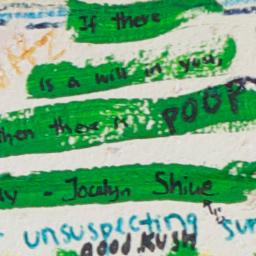 If there
is a will in you,
then there is POOP
- Jocelyn Shiue
unsuspecting
GOOD KUSH